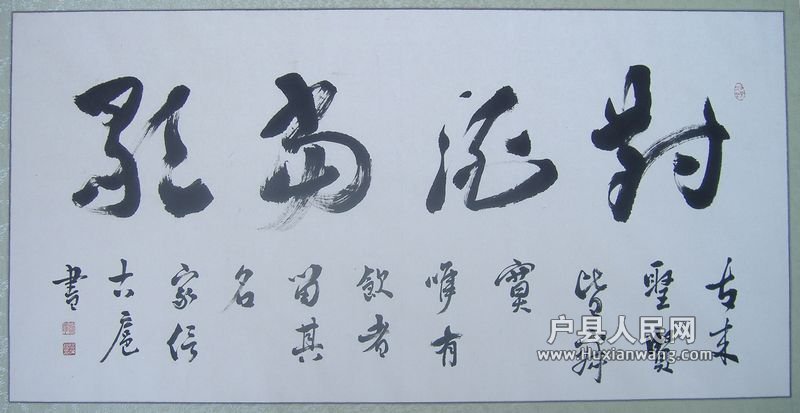 對酒當歌
古來
聖賢
皆寂
寞
唯有
飲者
留其
名
家信
古扈
書
户县人民网
www.Huxianwang.com